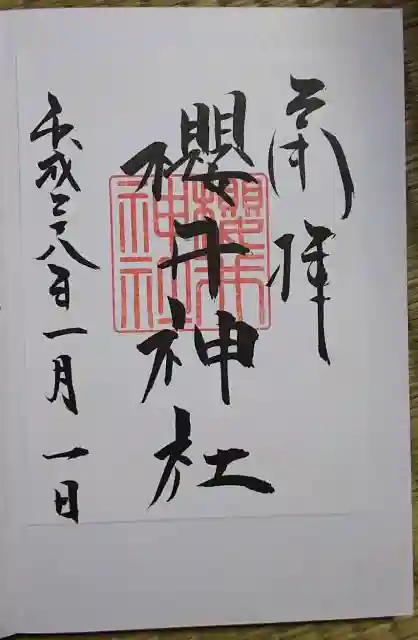 奉拝
櫻木神社
平成二八年一月一日
櫻木神社